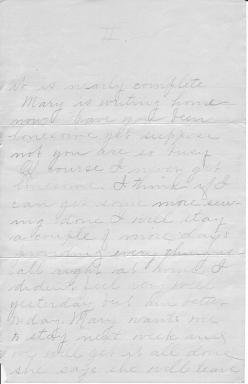 II.
is nearly complete
Mary is writing home
now. Have you been
lonesome yet suppose
not you are so busy
Of course I never get
lonesome. I think if I
can get some more sew-
ing done I will stay
a couple of more days
providing everything is
all right at home. I
didn't feel very well
yesterday but am better
today. Mary wants me
to stay next week and
we will get it all done
she says she will leave